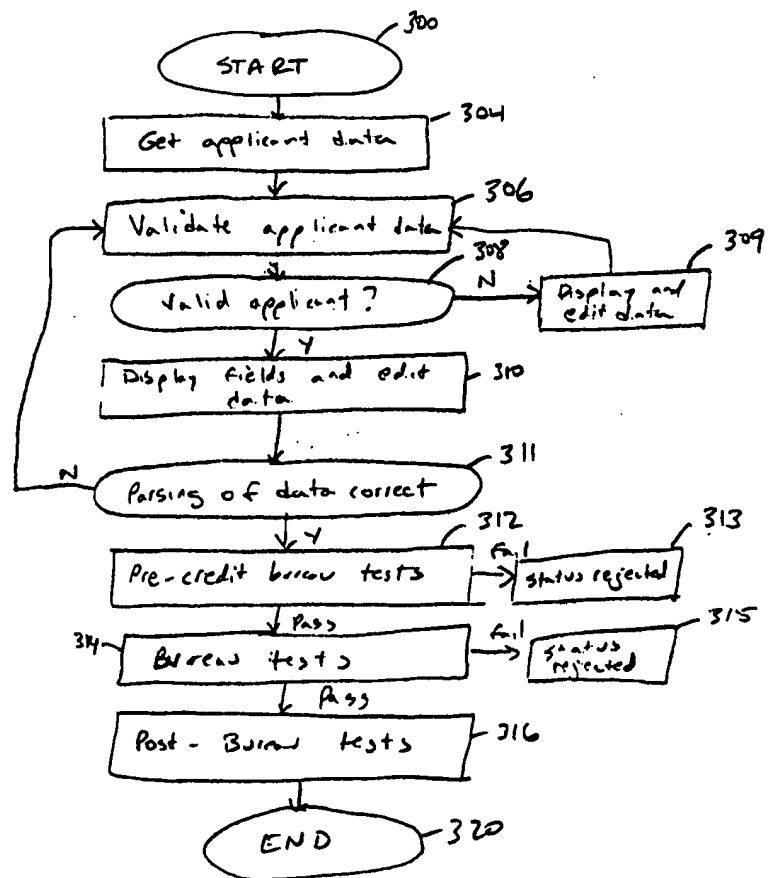 300
START
304
Get applicant data
306
Validate applicant data
308
Valid applicant?
N
309
Display and
edit data
Y
Display fields and edit
data
310
311
N
Parsing of data correct
Y
312
Pre-credit bureau tests
Fail
313
Status rejected
Pass
314
Bureau tests
Fail
315
Status
rejected
Pass
Post-Bureau tests
316
END
320